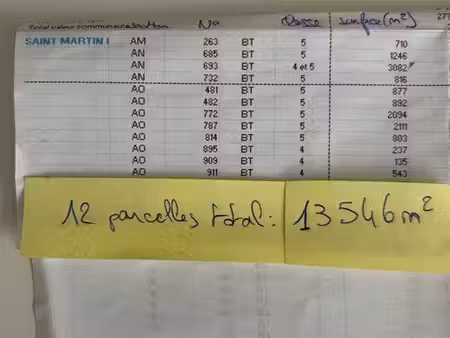 Total valeur communau Section N° Classe surface (m²)
SAINT MARTIN AM 263 BT 5 710
AN 685 BT 5 1246
AN 693 BT 4 et 5 3082
AN 732 BT 5 816
AO 481 BT 5 877
AO 482 BT 5 892
AO 772 BT 5 2094
AO 787 BT 5 2111
AO 814 BT 5 803
AO 895 BT 4 237
AO 909 BT 4 135
AO 911 BT 4 543
12 parcelles total: 13546m²